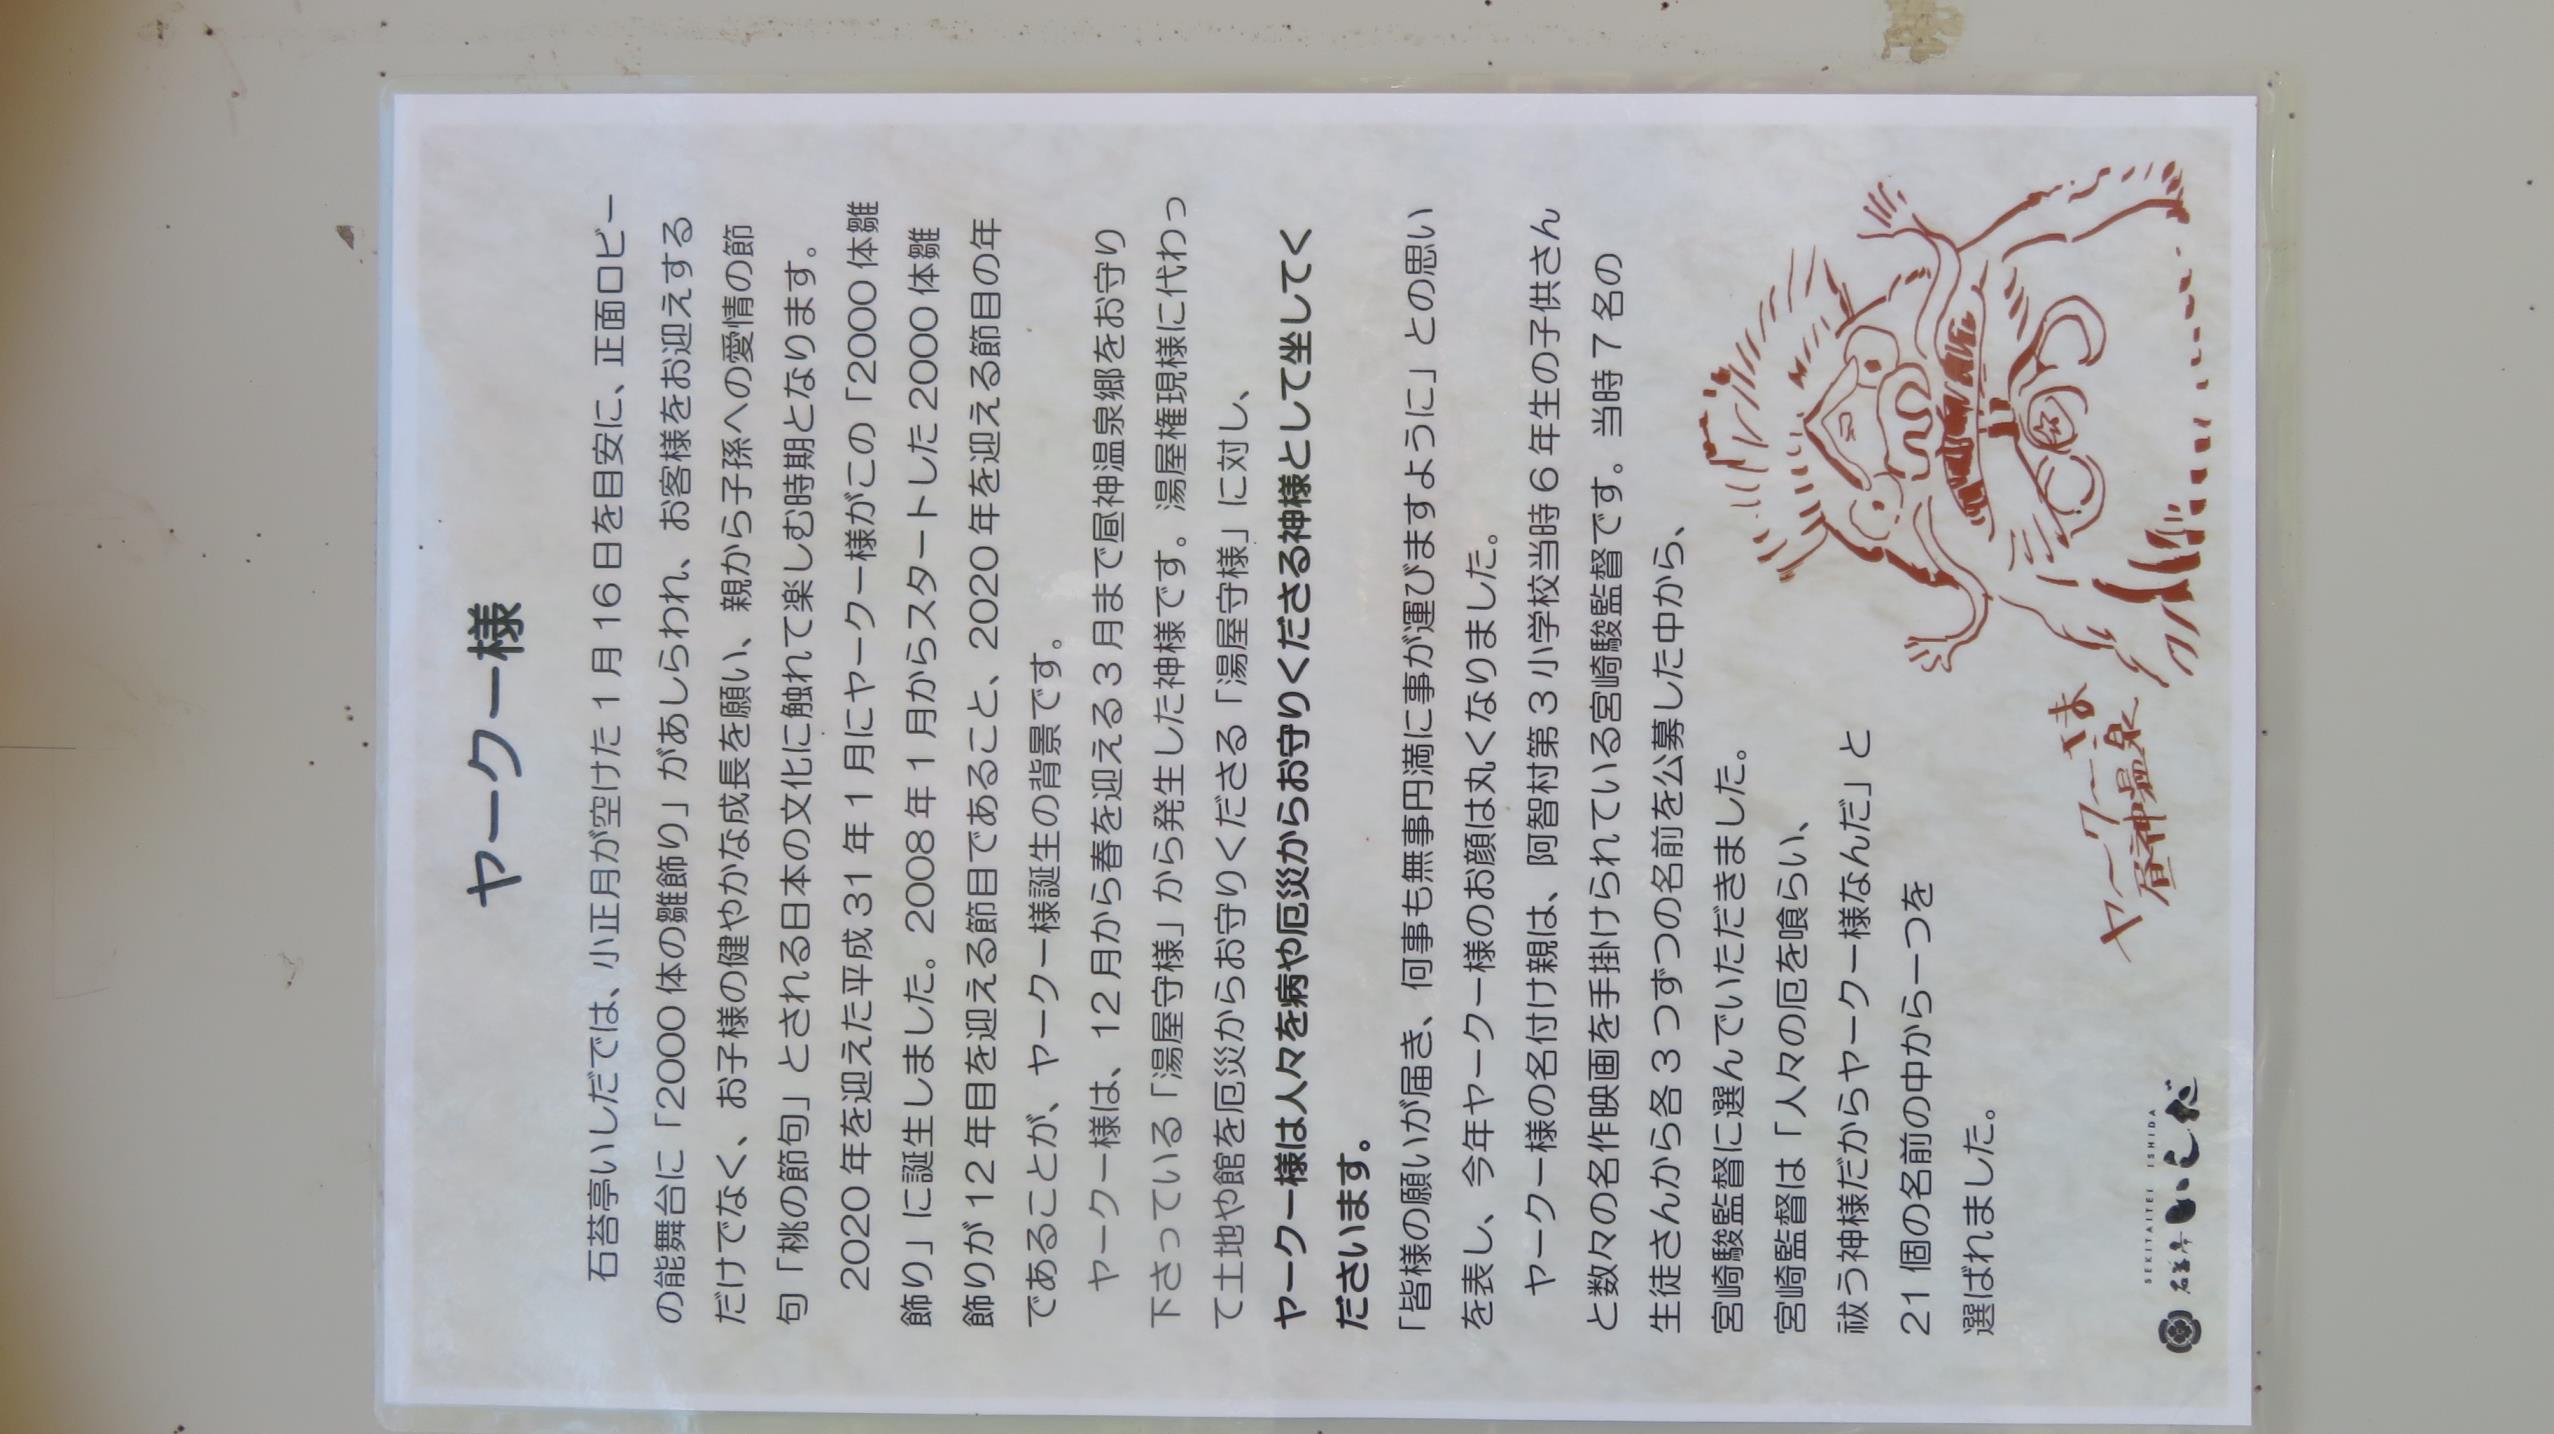 ヤークー様
石苔亭いしだでは、小正月が空けた１月１６日を目安に、正面ロビー
の能舞台に「2000体の雛飾り」があしらわれ、お客様をお迎えする
だけでなく、お子様の健やかな成長を願い、親から子孫への愛情の節
句「桃の節句」とされる日本の文化に触れて楽しむ時期となります。
2020年を迎えた平成31年１月にヤークー様がこの「2000体雛
飾り」に誕生しました。2008年１月からスタートした2000体雛
飾りが12年目を迎える節目であること、2020年を迎える節目の年
であることが、ヤークー様誕生の背景です。
ヤークー様は、12月から春を迎える３月まで昼神温泉郷をお守り
下さっている「湯屋守様」から発生した神様です。湯屋権現様に代わっ
て土地や館を厄災からお守りくださる「湯屋守様」に対し、
ヤークー様は人々を病や厄災からお守りくださる神様として坐してく
ださいます。
「皆様の願いが届き、何事も無事円満に事が運びますように」との思い
を表し、今年ヤークー様のお顔は丸くなりました。
ヤークー様の名付け親は、阿智村第３小学校当時６年生の子供さん
と数々の名作映画を手掛けられている宮崎駿監督です。当時７名の
生徒さんから各３つずつの名前を公募した中から、
宮崎駿監督に選んでいただきました。
宮崎監督は「人々の厄を喰らい、
祓う神様だからヤークー様なんだ」と
21個の名前の中から一つを
選ばれました。
ヤークーさま
昼神温泉
SEKITAITEI ISHIDA
石苔亭いしだ